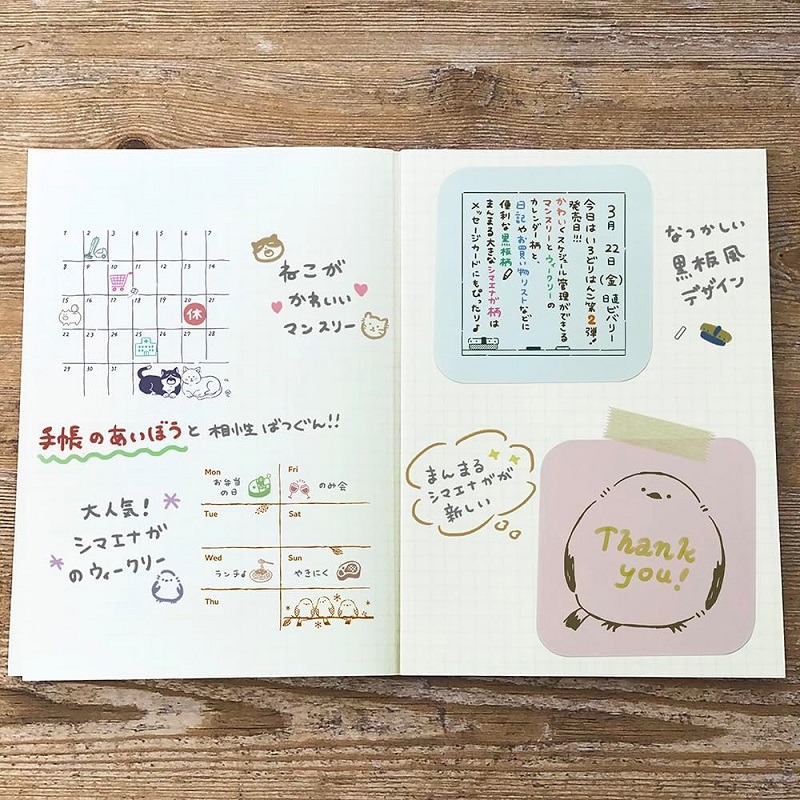 1 2 3 4 5 6 7
8 9 10 11 12 13 14
15 16 17 18 19 20 21
休
22 23 24 25 26 27 28
29 30 31
ねこが
かわいい
マンスリー
手帳のあいぼうと相性ばつぐん!!
大人気!
シマエナガ
のウィークリー
Mon
お弁当
の日
Fri
のみ会
Tue
Sat
Wed
ランチ♪
Sun
やきにく
Thu
3月22日(金)
日直ビバリー
今日はいろどりはんこ第2弾!
発売日!!!
かわいくスケジュール管理ができる
マンスリーとウィークリーの
カレンダー柄と、
日記やお買い物リストなどに
便利な黒板柄
まんまる大きなシマエナガ柄は
メッセージカードにもぴったり♪
なつかしい
黒板風
デザイン
まんまる
シマエナガが
新しい
Thank
you!